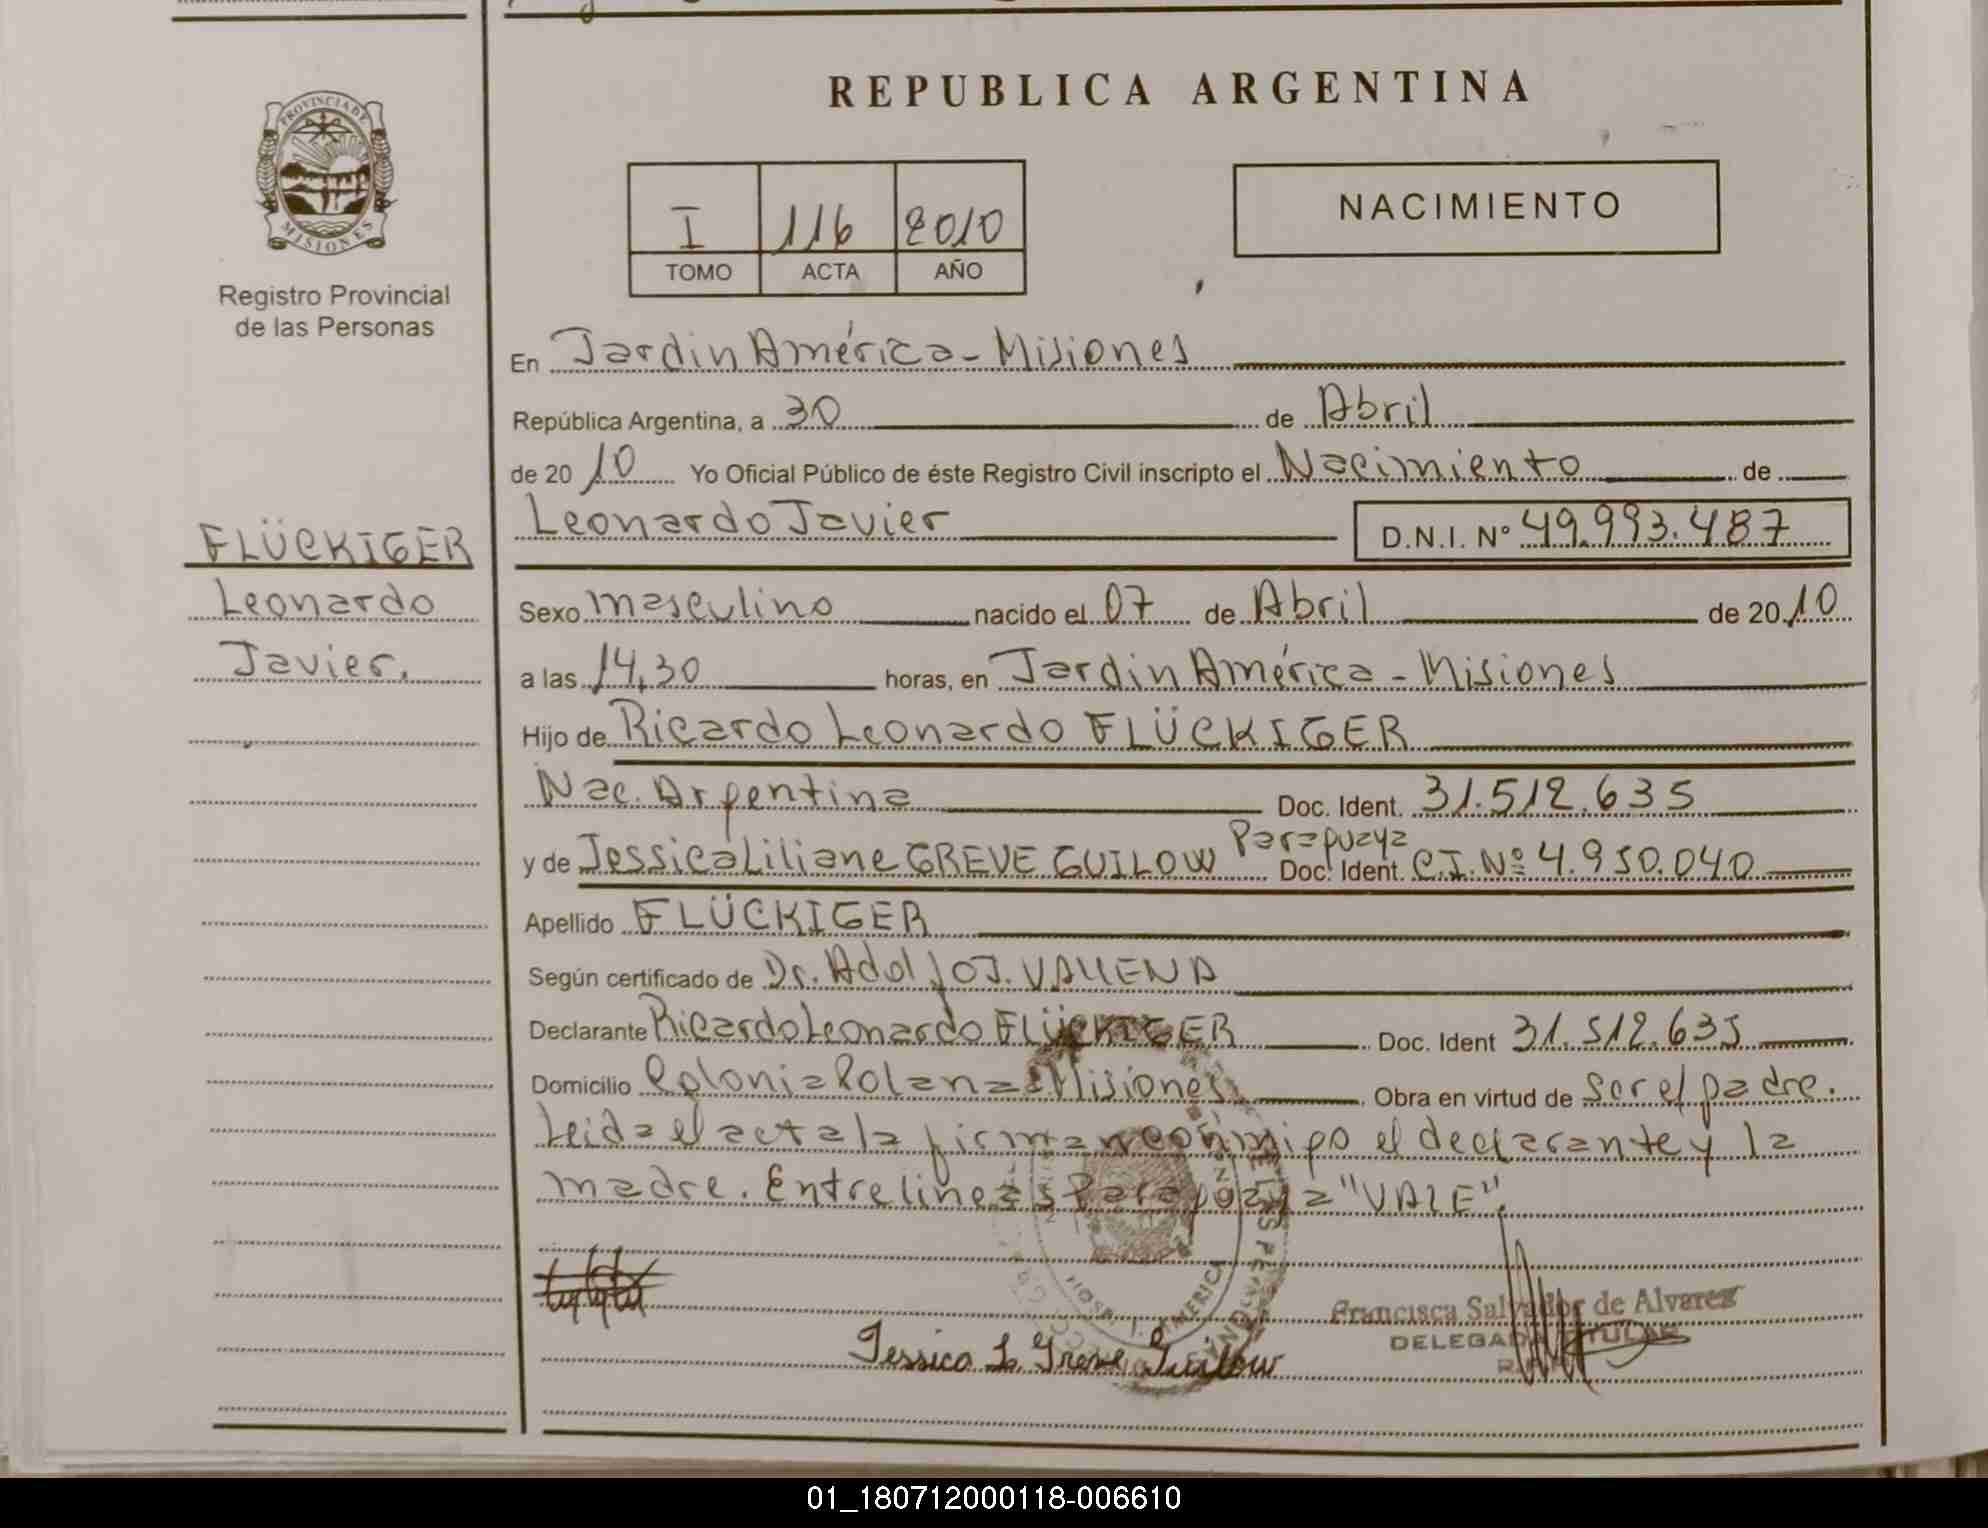 REPUBLICA ARGENTINA
PROVINCIA DE
MISIONES
Registro Provincial
de las Personas
I 116 2010
TOMO ACTA AÑO
NACIMIENTO
FLÜCKIGER
Leonardo
Javier.
En Jardin América - Misiones
República Argentina, a 30 de Abril
de 20 10 Yo Oficial Público de éste Registro Civil inscripto el Nacimiento de
Leonardo Javier D.N.I. Nº 49.993.487
Sexo masculino nacido el 07 de Abril de 20 10
a las 14,30 horas, en Jardin América - Misiones
Hijo de Ricardo Leonardo FLÜCKIGER
Nac. Argentina Doc. Ident. 31.512.635
Paraguaya
y de Jessica Liliane GREVE GUILOW Doc. Ident. C.I. Nº 4.950.040
Apellido FLÜCKIGER
Según certificado de Dr. Adolfo J.
Declarante Ricardo Leonardo FLÜCKIGER Doc. Ident 31.512.635
Domicilio Colonia Polana - Misiones Obra en virtud de ser el padre.
Leida el acta la firman conmigo el declarante y la
madre. Entrelineas Paraguaya "VALE".
Jessica L. Greve Guilow
Francisca Salvador de Alvarez
DELEGADA TITULAR
01_180712000118-006610